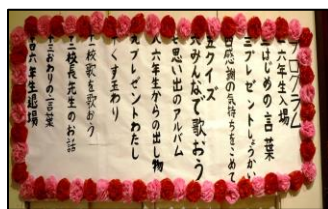 プログラム
一六年生入場
二はじめの言葉
三プレゼントしょうかい
四感謝の気持ちをこめて
五クイズ
六みんなで歌おう
七思い出のアルバム
八六年生からの出し物
九プレゼントわたし
十くす玉わり
十一校歌を歌おう
十二校長先生のお話
十三おわりの言葉
十四六年生退場